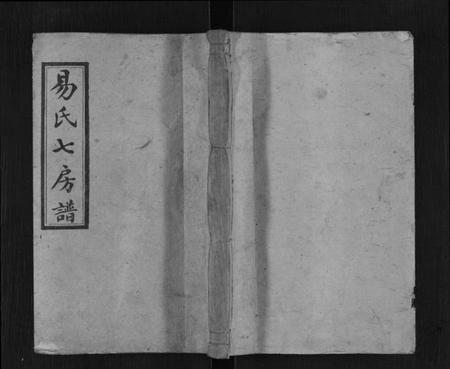 易氏七房譜